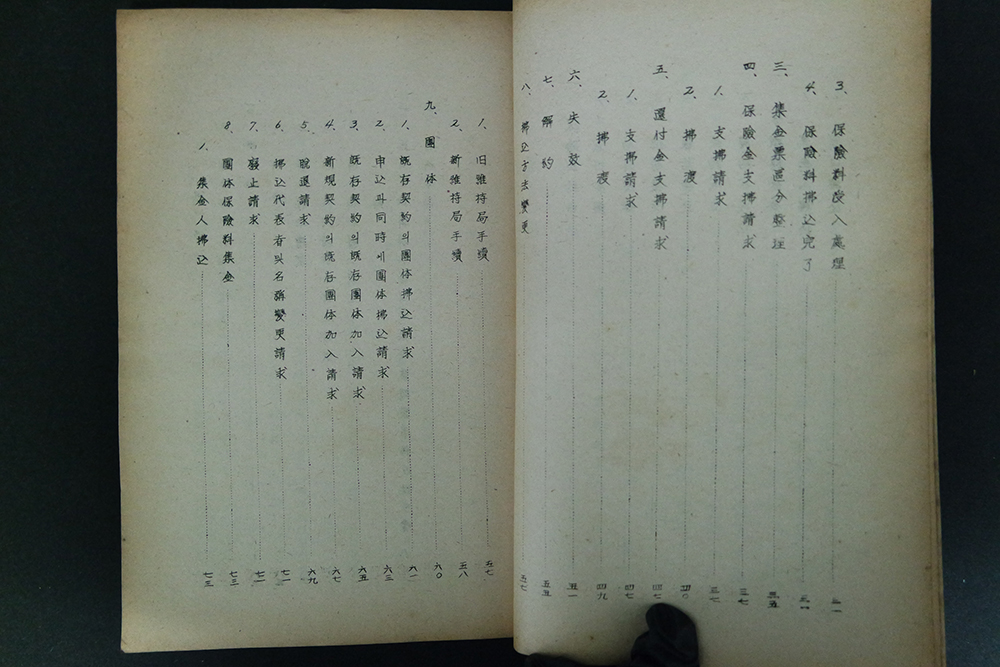 3、保險料受入處理 二一
4、保險料拂込完了 三一
三、集金票區分整理 三五
四、保險金支拂請求 三七
1、支拂請求 三七
2、拂渡 四〇
五、還付金支拂請求 四七
1、支拂請求 四七
2、拂渡 四九
六、失效 五一
七、解約 五五
八、拂込方法變更 五七
1、旧維持局手續 五七
2、新維持局手續 五八
九、團体 六〇
1、旣存契約의團体拂込請求 六一
2、申込과同時에團体拂込請求 六三
3、旣存契約의旣存團体加入請求 六五
4、新規契約의旣存團体加入請求 六七
5、脫退請求 六九
6、拂込代表者又名稱變更請求 七一
7、廢止請求 七二
8、團体保險料集金 七三
1、集金人拂込 七三